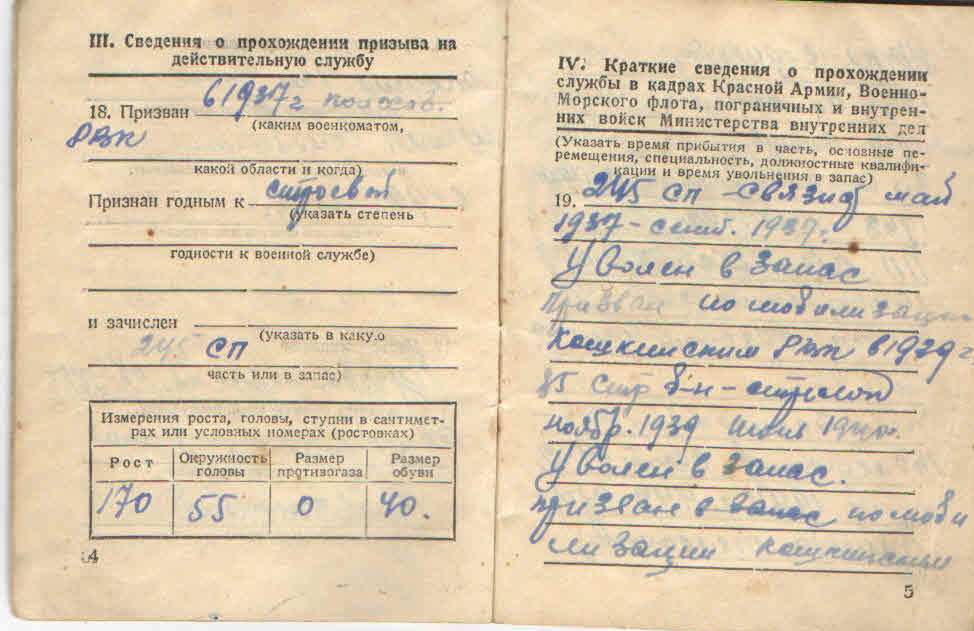 III. Сведения о прохождении призыва на
действительную службу
18. Призван в 1937 г
(каким военкоматом,
РВК
какой области и когда)
Признан годным к строевой
(указать степень
годности к военной службе)
и зачислен
(указать в какую
245 СП
часть или в запас)
Измерения роста, головы, ступни в сантимет-
рах или условных номерах (ростовках)
Рост
Окружность
головы
Размер
противогаза
Размер
обуви
170 55 0 40.
4
IV. Краткие сведения о прохождении
службы в кадрах Красной Армии, Военно-
Морского флота, пограничных и внутрен-
них войск Министерства внутренних дел
(Указать время прибытия в часть, основные пе-
ремещения, специальность, должностные квалифи-
кации и время увольнения в запас)
19. 245 СП - связист май
1937 - сент. 1937 г.
Уволен в запас
Призван по мобилизации
РВК в 1939 г
стр б-н - стрелок
ноябр. 1939 1940 г.
Уволен в запас.
призван в запас по моби
лизации
5